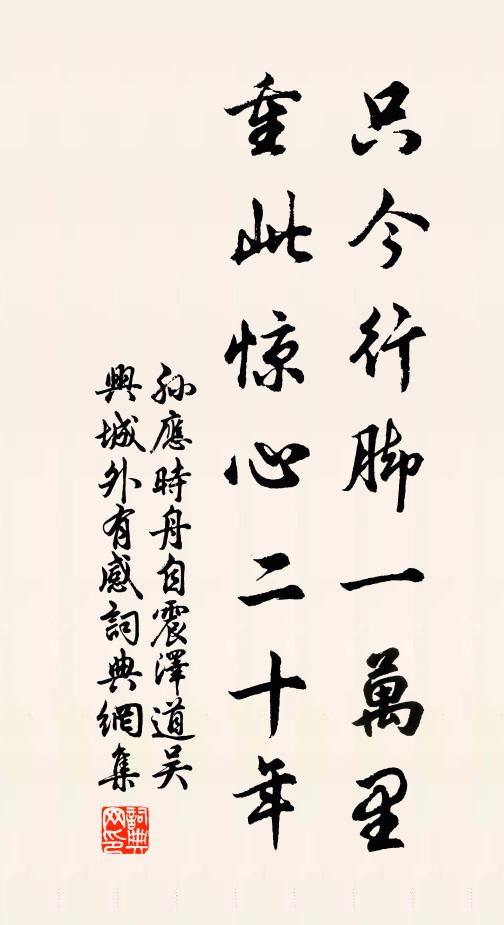 只今行脚一萬里
重此惊心二十年
孙應時舟自震澤道吴
興城外有感詞典網集
詞典
网印